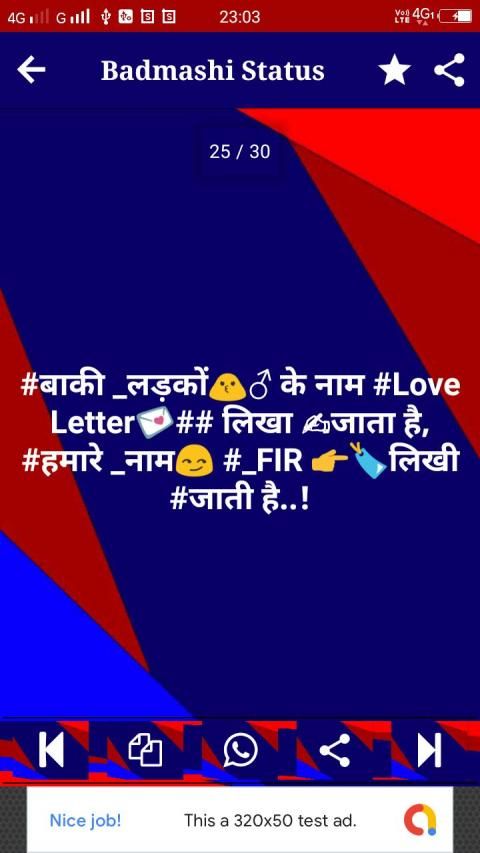 4G G 23:03 VoLTE 4G1
Badmashi Status
25 / 30
#बाकी _लड़कों😗♂ के नाम #Love
Letter💌## लिखा ✍जाता है,
#हमारे _नाम😏 #_FIR 👉🏷लिखी
#जाती है..!
Nice job! This a 320x50 test ad.